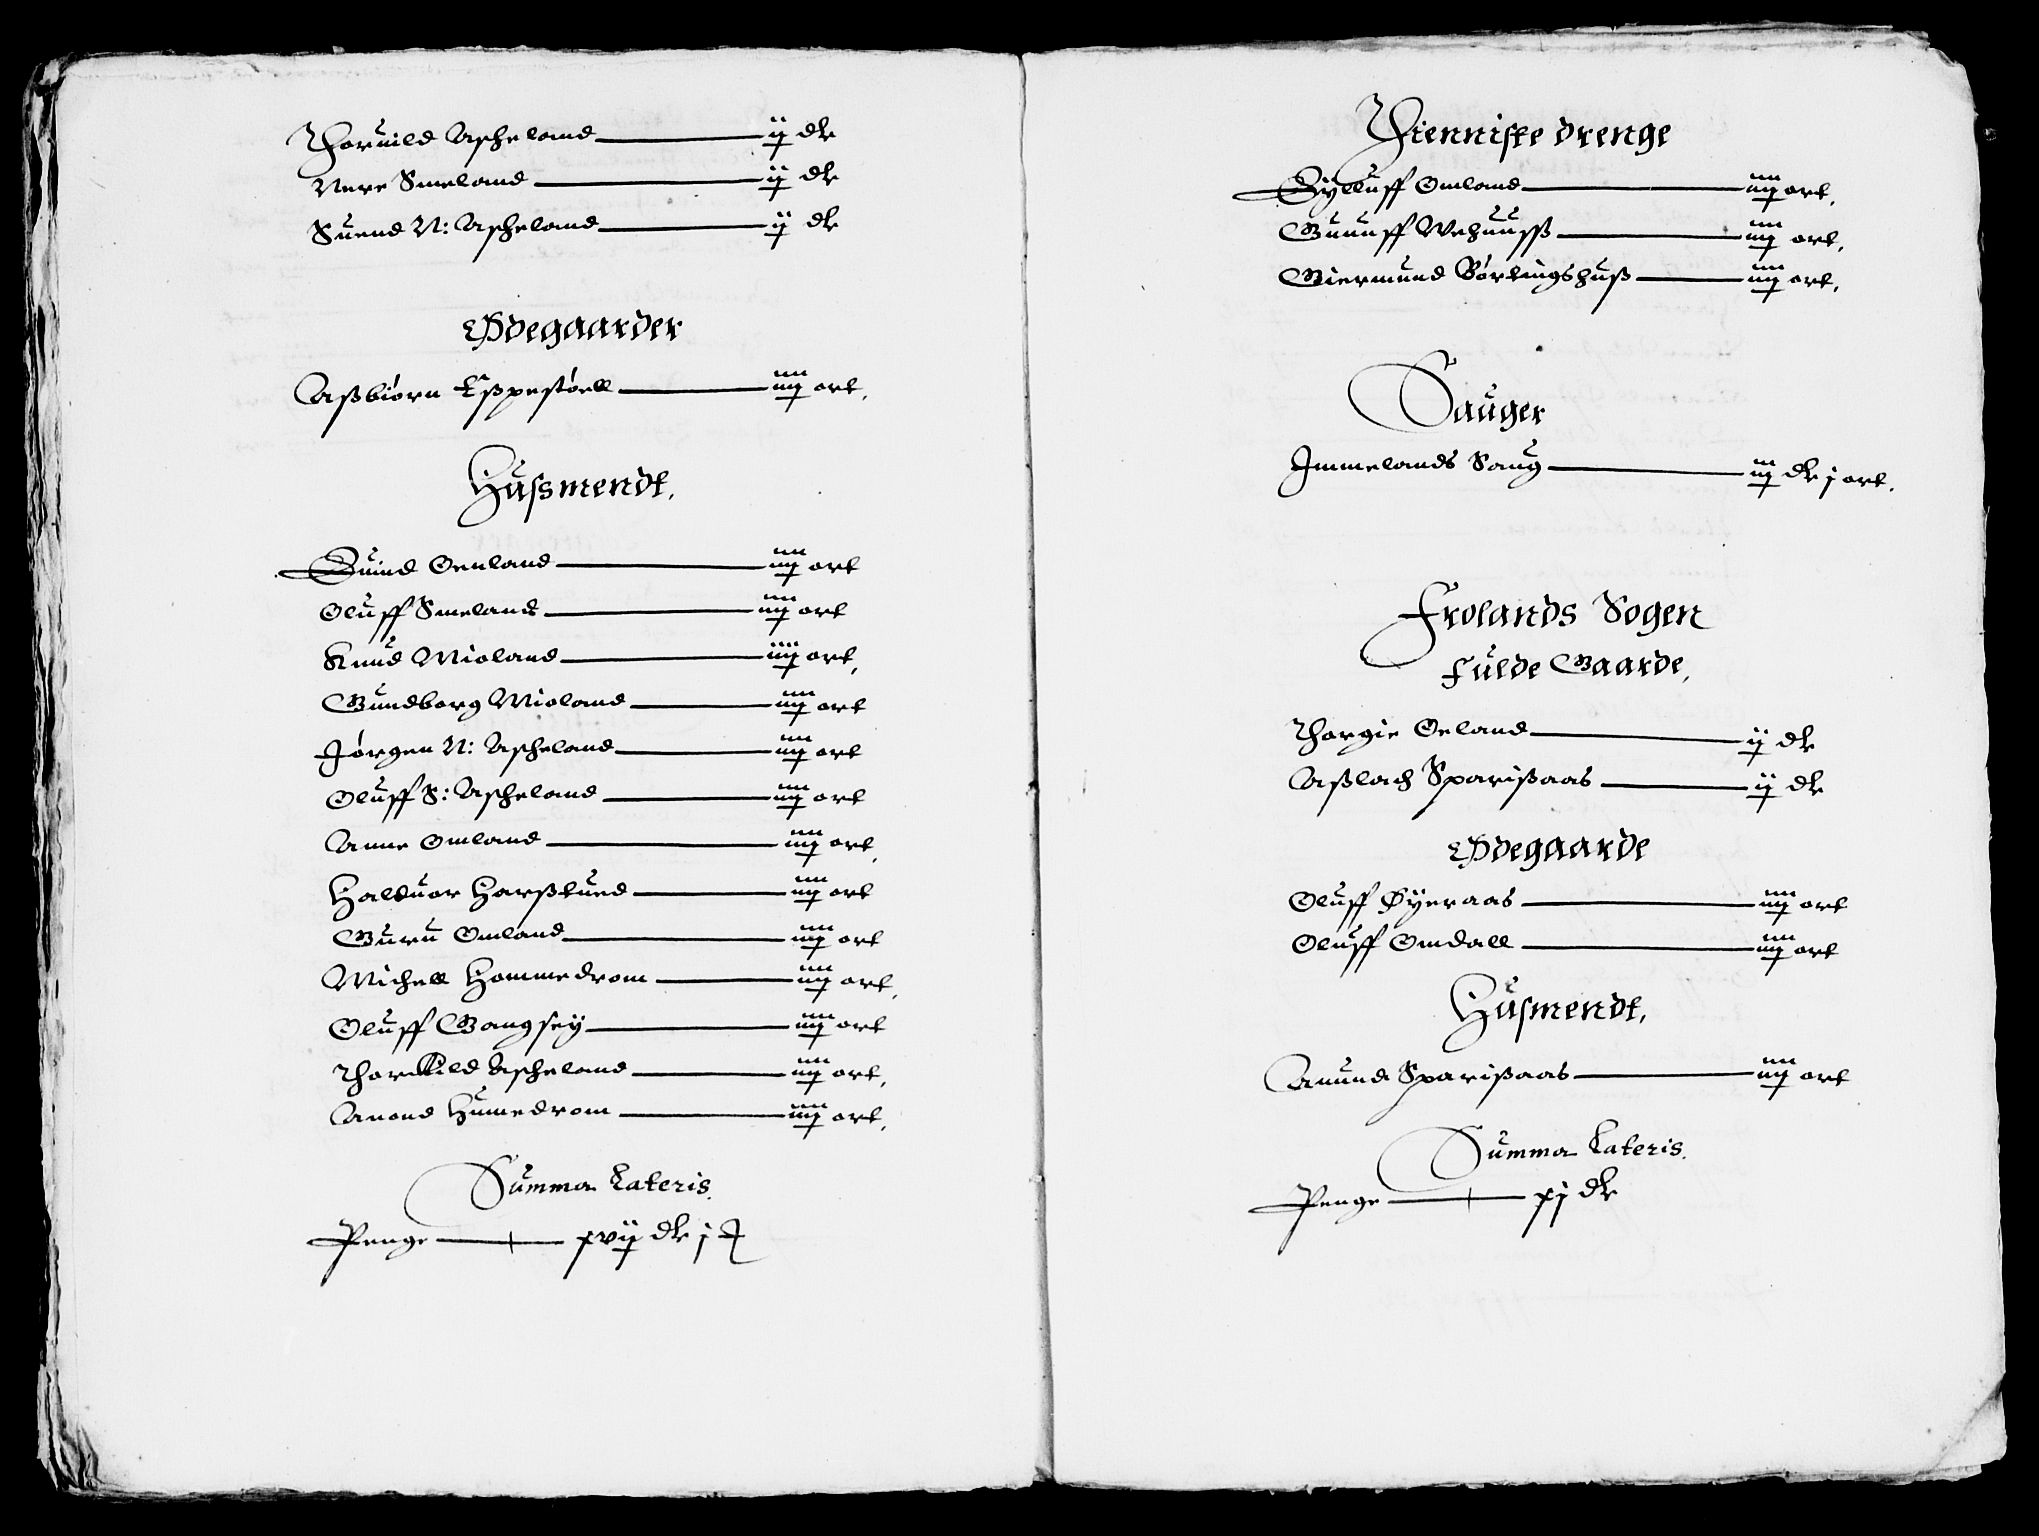 Thoruild Ascheland ij dlr
Nere Smeland ij dlr
Suend N: Ascheland ij dlr
Ødegaarder
Aßbiørn Eßpestøell iiij ort.
Hussmendt.
Suind Omland iiij ort
Oluff Smeland iiij ort
Knud Mioland iiij ort,
Gundborg Mioland iiij ort
Jørgen N: Ascheland iiij ort
Oluff S: Ascheland iiij ort
Anne Omland iiij ort,
Halduor Harßlund iiij ort
Guru Omland iiij ort
Michell Hommedrom iiij ort,
Oluff Gangsey iiij ort
Thorkild Ascheland iiij ort,
Anond Humedrom iiij ort,
Summa Lateris.
Penge xvij dlr j
Thienniste drenge
Sylluff Omland iiij ort,
Gunuff Wehuusß iiij ort,
Giermund Børlingshuß iiij ort,
Sauger
Immelands Saug iij dlr j ort.
Frolands Sogen
Fulde Gaarde,
Thorgie Oeland ij dlr
Aßlach Sparißaas ij dlr
Ødegaarde
Oluff Øyeraas iiij ort
Oluff Omdall iiij ort
Husmendt,
Anund Sparißaas iiij ort
Summa Lateris.
Penge xj dlr